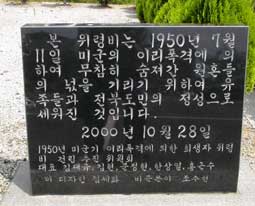 본 위령비는 1950년 7월
11일 미군의 이리폭격에 의
하여 무참히 숨져간 원혼들
의 넋을 기리기 위하여 유
족들과 전북도민의 정성으로
세워진 것입니다.
2000년 10월 28일
1950년 미군기 이리폭격에 의한 희생자 위령
비 건립 추진 위원회
대표